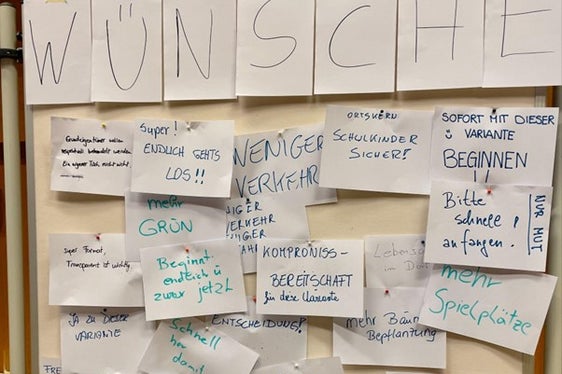 WÜNSCHE
Grundeigentümer wollen
respektvoll behandelt werden
Ein eigener Tisch reicht nicht.
Super!
ENDLICH GEHTS
LOS!!
WENIGER
VERKEHR
ORTSKERN
SCHULKINDER
SICHER!
SOFORT MIT DIESER
VARIANTE
BEGINNEN
!!
mehr
GRÜN
NIGER
VERKEHR
NIGER
Bitte
schnell!
anfangen.
NUR MUT
Super Format,
Transparent ist wichtig
Beginnt
endlich ü
zwar jetzt
KOMPROMISS-
BEREITSCHAFT
für diese Variante
im
mehr
Spielplätze
JA ZU DIESER
VARIANTE
Schnell
damit
ENTSCHEIDUNG!
mehr
Bepflanzung
FRE